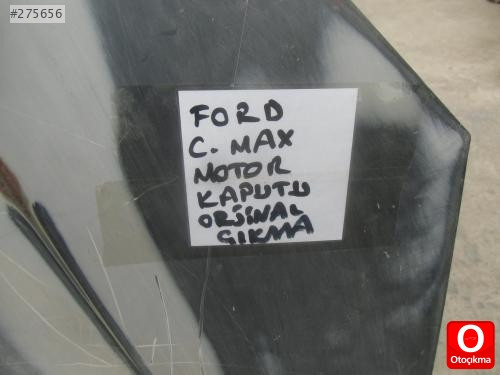 #275656
FORD
C. MAX
MOTOR
KAPUTU
ORJİNAL
ÇIKMA
O
Otoçıkma